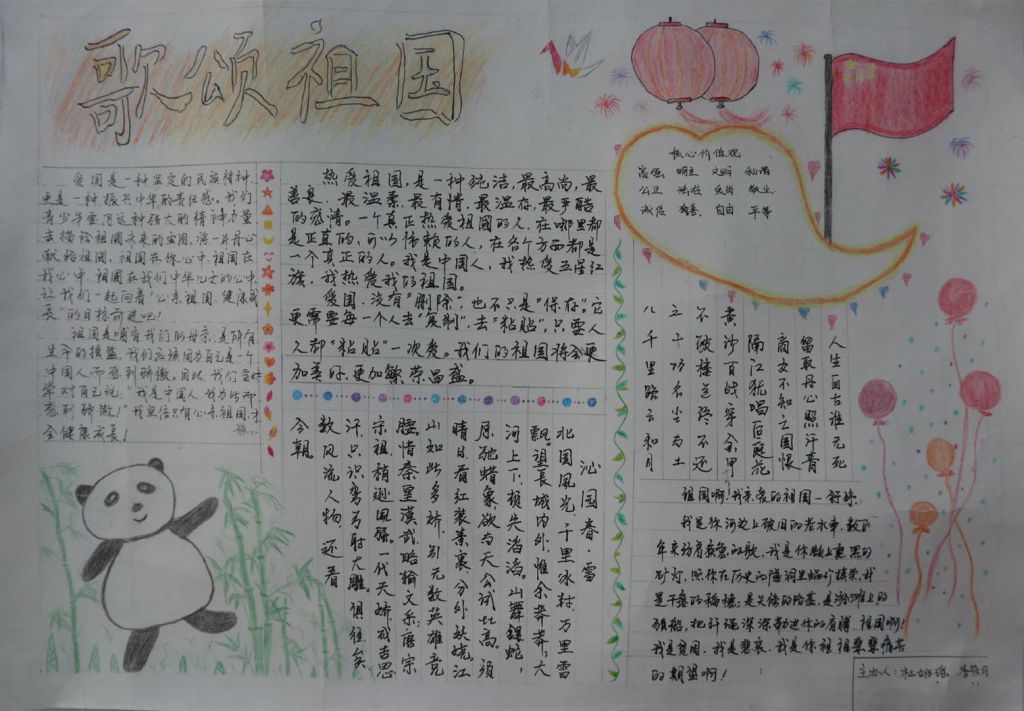 歌颂祖国
爱国是一种坚定的民族精神,
更是一种振兴中华的责任感。我们
青少年要用这种强大的精神力量
去描绘祖国未来的宏图,将一片丹心
献给祖国,祖国在你心中,祖国在
我心中,祖国在我们中华儿女的心中,
让我们一起向着“心系祖国,健康成
长”的目标前进吧!
祖国是哺育我们的母亲,是所有
生命的摇篮,我们应该因为自己是一个
中国人而感到骄傲。因此,我们会时
常对自己说:“我是中国人,我为此而
感到骄傲!”我坚信只有心系祖国,才
会健康成长!
热爱祖国,是一种纯洁,最高尚,最
善良,最温柔,最有情,最温存,最严酷
的感情。一个真正热爱祖國的人,在哪里都
是正真的,可以信赖的人,在各个方面都是
一个真正的人。我是中国人,我热爱五星红
旗,我热爱我的祖国。
爱国,没有“删除”,也不只是“保存”,它
更需要每一个人去“复制”,去“粘贴”,只要人
人都“粘贴”一次爱。我们的祖国将会更
加美好,更加繁荣昌盛。
核心价值观
富强 明主 文明 和谐
公正 法治 爱岗 敬业
诚信 友善 自由 平等
人生自古谁无死
留取丹心照汗青
商女不知亡国恨
隔江犹唱后庭花
黄沙百战穿金甲
不破楼兰终不还
三十功名尘与土
八千里路云和月
沁园春·雪
北国風光,千里冰封,万里雪
飘。望長城内外,惟余莽莽,大
河上下,顿失滔滔。山舞銀蛇,
原驰蜡象,欲与天公试比高。须
晴日,看红装素裹,分外妖娆。江
山如此多娇,引无数英雄竞
腰。惜秦皇漢武,略输文采;唐宗
宋祖,稍逊風騷。一代天骄,成吉思
汗,只识弯弓射大雕。俱往矣,
数風流人物,还看
今朝。
祖国啊!我亲爱的祖国—舒婷
我是你河边上破旧的老水車,数百
年来纺着疲惫的歌,我是你额上熏黑的
矿灯,照你在历史的隧洞里蜗行摸索,我
是干瘪的稻穗;是失修的路基,是淤滩上的
驳船,把纤绳深深勒进你的肩膊,祖国啊!
我是贫困,我是悲哀,我是你祖祖辈辈痛苦
的期望啊!
主办人: